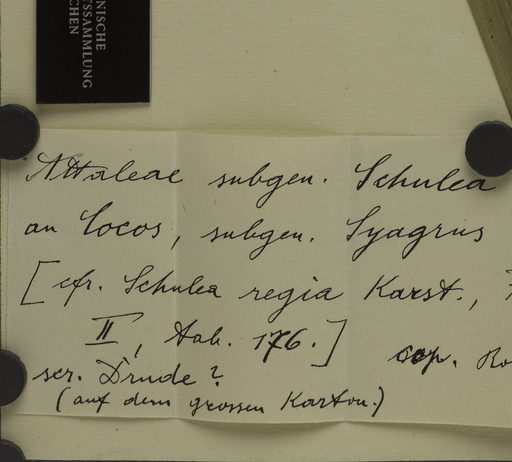 NISCHE
SSAMMLUNG
CHEN
Attaleae subgen. Schulea
an Cocos, subgen. Syagrus
[cfr. Schulea regia Karst.,
II, tab. 176.]
cop. Ro
scr. Drude?
(auf dem grossen Karton.)